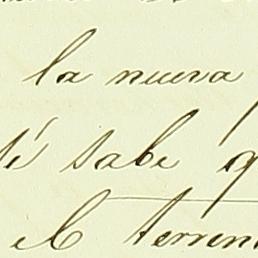 la nueva
té sabe q
el terren